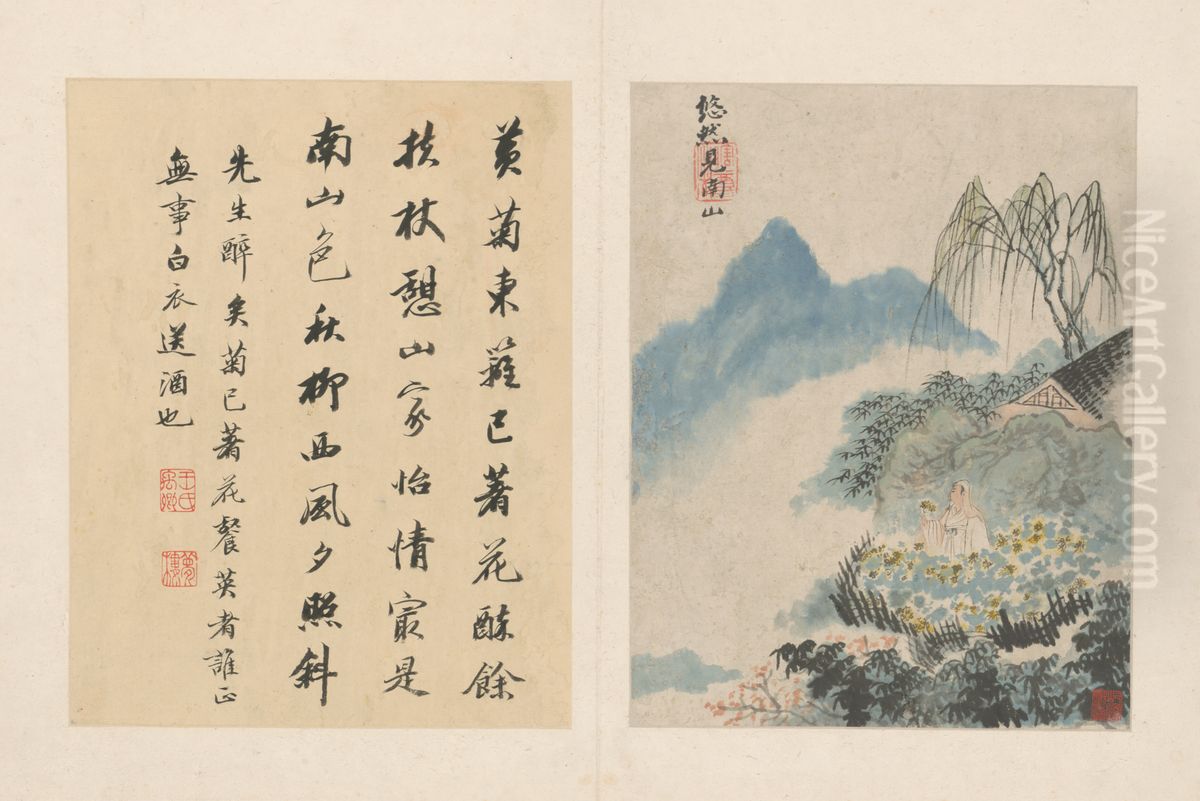 悠然見南山
黃菊東籬已著花酥餘
扶杖憩山家怡情寂是
南山色秋柳西風夕照斜
先生醉矣菊已著花餐英者誰正
無事白衣送酒也
王氏禹卿
夢樓
NiceArtGallery.com